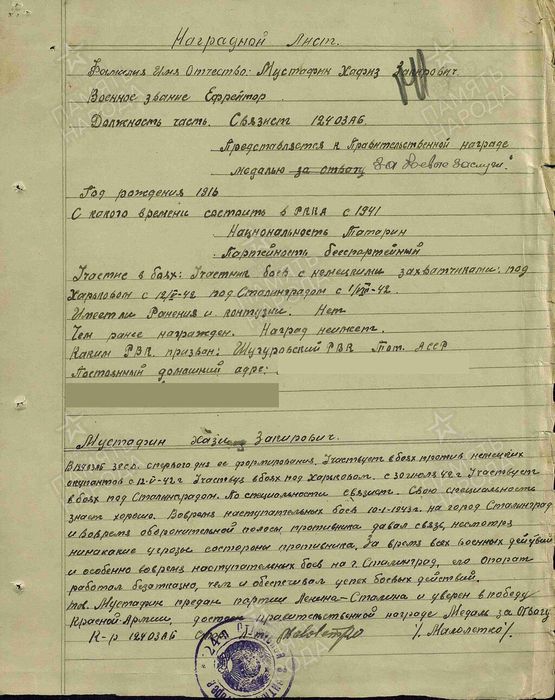 Наградной Лист.
Фамилия Имя Отчество: Мустафин Хафиз Закирович.
Военное звание Ефрейтор.
Должность часть. Связист 1240ЗАБ.
Представляется к Правительственной награде
медалью за отвагу "За боевые заслуги."
Год рождения 1916
С какого времени состоить в РККА с 1941
Национальность Татарин
Партейность беспартейный
Участие в боях: Участник боев с немецкими захватчиками: под
Харьковом с 12/V-42 под Сталинградом с 42.
Имеет ли Ранения и контузии. Нет
Чем ранее награжден. Наград неимеет.
Каким РВК призван: Шугуровский РВК Тат. АССР
Постоянный домашний адре:
Мустафин Закирович.
В 1240ЗАБ здесь с первого дня ее формирования. Участвует в боях против немецких
окупантов с 12-V-42г Участвуя в боях под Харьковом. с 30 июля 42г Участвует
в боях под Сталинградом. По специальности связист. Свою специальность
знает хорошо. Вовремя наступательных боев 10-1-1943г. на город Сталинград
и Вовремя оборонительной полосы противника давал связь, несмотря
нинакакие угрозы состороны противника. За время всех боенных действий
и особенно вовремя наступательных боев на г. Сталинград, его опарат
работал безатказно, чем и обеспечивал успех боевых действий.
тов. Мустафин предан партии Ленина-Сталина и уверен в победу
Красной Армии, достоен правительственной награде Медаль за Отвагу
К-р 1240ЗАБ /Малолетко/.
ПАМЯТЬ НАРОДА